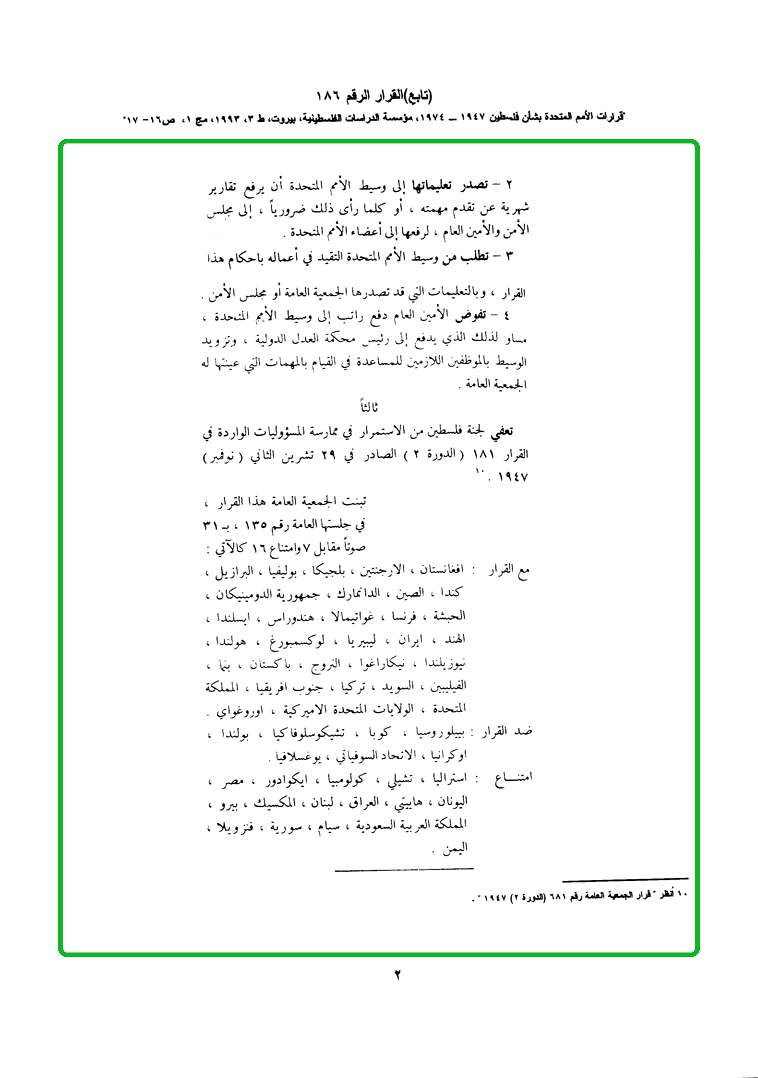 (تابع)القرار الرقم ١٨٦
"قرارات الأمم المتحدة بشأن فلسطين ١٩٤٧ ــ ١٩٧٤، مؤسسة الدراسات الفلسطينية، بيروت، ط ٣، ١٩٩٣، مج ١، ص١٦- ١٧"
٢ – تصدر تعليماتها إلى وسيط الأمم المتحدة أن يرفع تقارير
شهرية عن تقدم مهمته ، أو كلما رأى ذلك ضرورياً ، إلى مجلس
الأمن والأمين العام ، لرفعها إلى أعضاء الأمم المتحدة .
٣ – تطلب من وسيط الأمم المتحدة التقيد في أعماله باحكام هذا
القرار ، وبالتعليمات التي قد تصدرها الجمعية العامة أو مجلس الأمن .
٤ – تفوض الأمين العام دفع راتب إلى وسيط الأمم المتحدة ،
مساو لذلك الذي يدفع إلى رئيس محكمة العدل الدولية ، وتزويد
الوسيط بالموظفين اللازمين للمساعدة في القيام بالمهمات التي عينتها له
الجمعية العامة .
ثالثاً
تعفي لجنة فلسطين من الاستمرار في ممارسة المسؤوليات الواردة في
القرار ١٨١ ( الدورة ٢ ) الصادر في ٢٩ تشرين الثاني ( نوفمبر )
١٩٤٧ . ١٠
تبنت الجمعية العامة هذا القرار ،
في جلستها العامة رقم ١٣٥ ، بـ ٣١
صوتاً مقابل ٧ وامتناع ١٦ كالآتي :
مع القرار : افغانستان ، الارجنتين ، بلجيكا ، بوليفيا ، البرازيل ،
كندا ، الصين ، الدانمارك ، جمهورية الدومينيكان ،
الحبشة ، فرنسا ، غواتيمالا ، هندوراس ، ايسلندا ،
الهند ، ايران ، ليبيريا ، لوكسمبورغ ، هولندا ،
نيوزيلندا ، نيكاراغوا ، النروج ، باكستان ، بنما ،
الفيليبين ، السويد ، تركيا ، جنوب افريقيا ، المملكة
المتحدة ، الولايات المتحدة الاميركية ، اوروغواي .
ضد القرار : بييلوروسيا ، كوبا ، تشيكوسلوفاكيا ، بولندا ،
اوكرانيا ، الاتحاد السوفياتي ، يوغسلافيا .
امتنــاع : استراليا ، تشيلي ، كولومبيا ، ايكوادور ، مصر ،
اليونان ، هاييتي ، العراق ، لبنان ، المكسيك ، بيرو ،
المملكة العربية السعودية ، سيام ، سورية ، فنزويلا ،
اليمن .
١٠ أنظر " قرار الجمعية العامة رقم ٦٨١ (الدورة ٢) ١٩٤٧ " .
٢